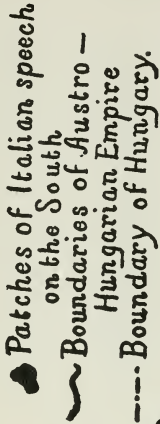 Patches of Italian speech
on the South
Boundaries of Austro—
Hungarian Empire
Boundary of Hungary.